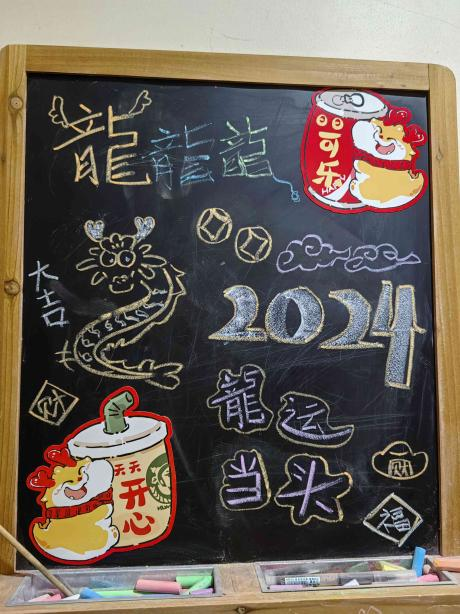 龍龍龍
可乐
大吉
2024
財
龍运
当头
天天
开心
财
福